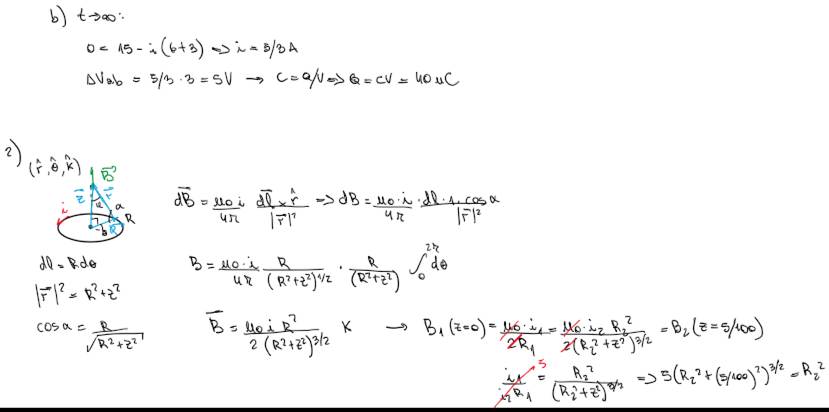 b) t→∞:
0 = 15 - i(6+3) => i = 5/3 A
ΔVab = 5/3 · 3 = 5V → C = Q/V => Q = CV = 40 µC
2)
(r̂, θ̂, k̂)
B⃗
z⃗ r⃗
α
i a R
b R
dB⃗ = µ0 i/4π dl⃗ x r̂/|r⃗|² => dB = µ0 · i/4π · dl · 1 · cos α/|r⃗|²
dl = R dθ
B = µ0 · i/4π R/(R²+z²)^1/2 · R/(R²+z²) ∫₀^2π dθ
|r⃗|² = R²+z²
cos α = R/√(R²+z²)
B⃗ = µ0 i R²/2(R²+z²)^3/2 K → B₁(z=0) = µ0 · i₁/2R₁ = µ0 · i₂ R₂²/2(R₂²+z²)^3/2 = B₂(z=5/100)
5
i₁/i₂R₁ = R₂²/(R₂²+z²)^3/2 => 5(R₂²+(5/100)²)^3/2 = R₂²